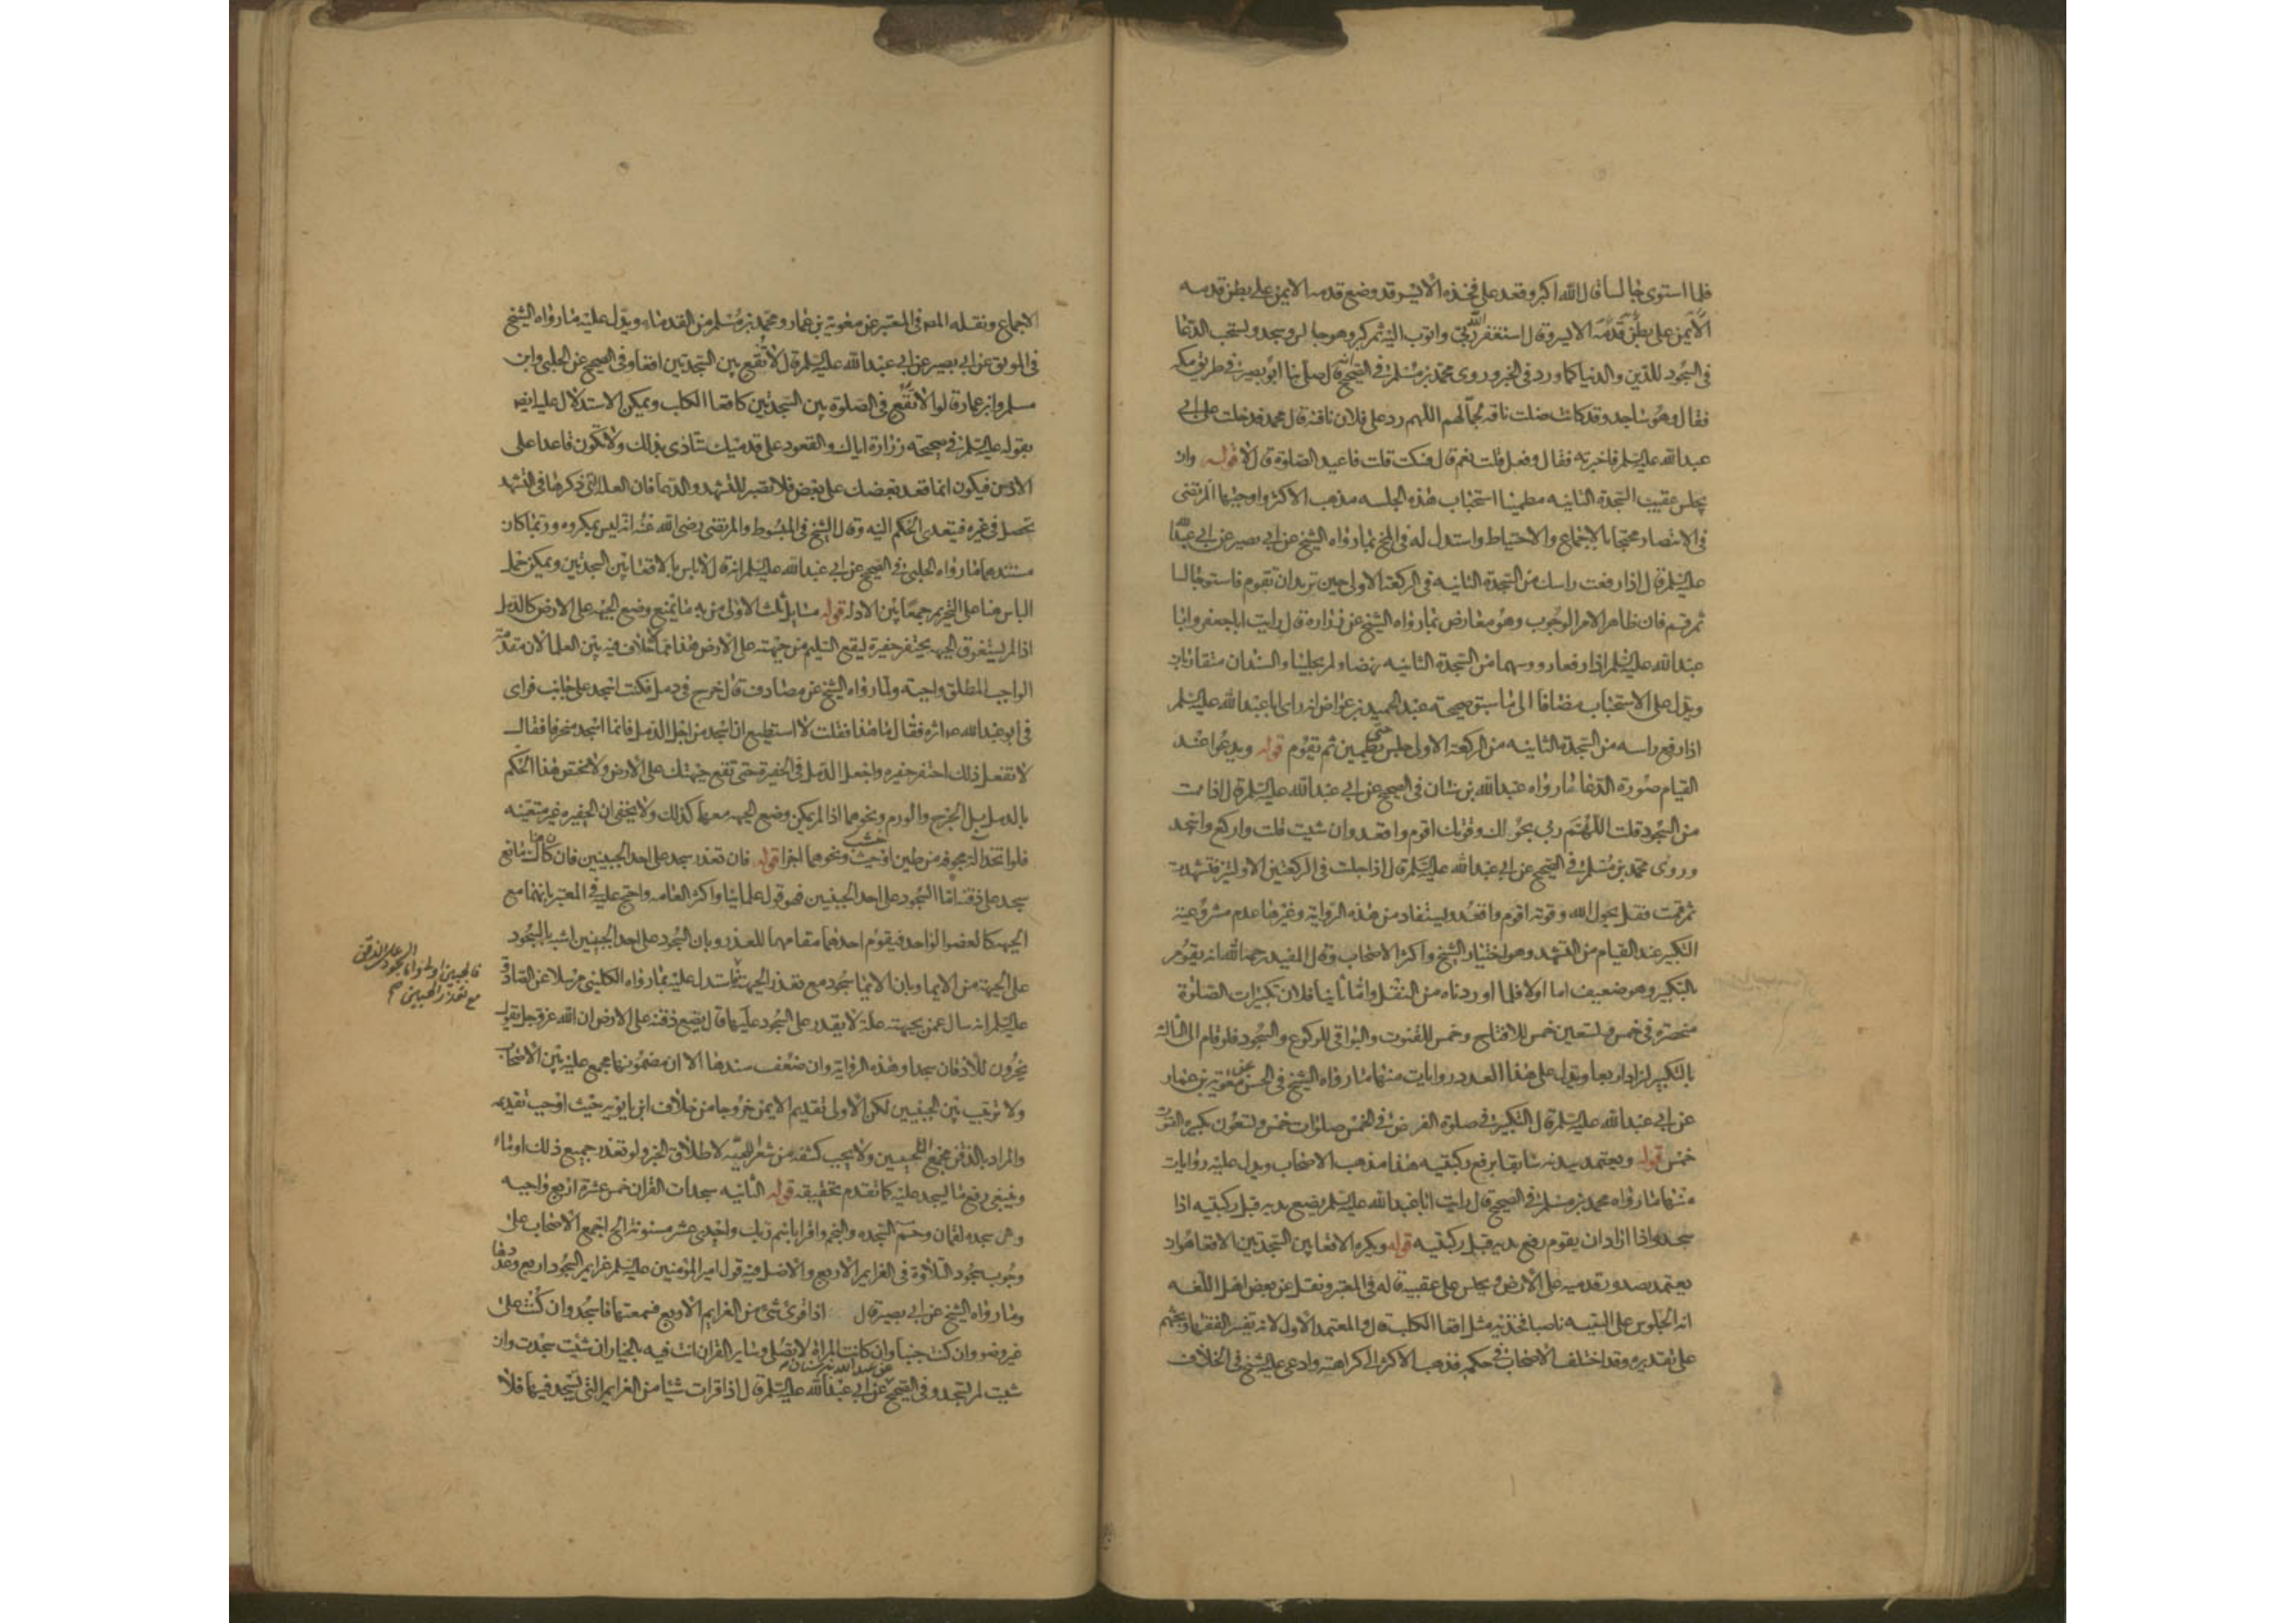 فلما استوى جالسا قال الله اكبر وقعد على فخذه الايسر قد وضع قدمه الايمن على بطن قدمه
الايمن على بطن قدمه الايسر وقال استغفر الله ربي واتوب اليه ثم كبر وهو جالس وسجد ويستحب الدعا
في السجود للدين والدنيا كما ورد في الخبر وروى محمد بن مسلم في الصحيح انه قال صلى بنا ابو بصير في طريق مكه
فقال وهو ساجد وقد كانت ضلت ناقه لجمالهم اللهم رد على فلان ناقته قال محمد فدخلت على ابي
عبد الله عليه السلم فاخبرته فقال وفعل قلت نعم قال فسكت قلت فاعيد الصلوة قال لا قوله وان
يجلس عقيب السجدة الثانيه مطمينا استحباب هذه الجلسه مذهب الاكثر واوجبها المرتضى
في الانتصار محتجا بالاجماع والاحتياط واستدل له في المخ بما رواه الشيخ عن ابي بصير عن ابي عبد الله
عليه السلم قال اذا رفعت راسك من السجدة الثانيه في الركعة الاولى حين تريد ان تقوم فاستو جالسا
ثم قم فان ظاهر الامر الوجوب وهو معارض بما رواه الشيخ عن زرارة قال رايت ابا جعفر وابا
عبد الله عليه السلم اذا رفعا رووسهما من السجدة الثانيه نهضا ولم يجلسا والسندان متقاربان
ويدل على الاستحباب مضافا الى ما سبق صحيحة عبد الحميد بن عواض انه راى ابا عبد الله عليه السلم
اذا رفع راسه من السجدة الثانيه من الركعة الاولى جلس حتى يطمين ثم يقوم قوله ويدعوا عند
القيام صورة الدعا ما رواه عبد الله بن سنان في الصحيح عن ابي عبد الله عليه السلم قال اذا قمت
من السجود قلت اللهم ربي بحولك وقوتك اقوم واقعد وان شيت قلت واركع واسجد
وروى محمد بن مسلم في الصحيح عن ابي عبد الله عليه السلم قال اذا جلست في الركعتين الاوليين فتشهدت
ثم قمت فقل بحول الله وقوته اقوم واقعد ويستفاد من هذه الرواية وغيرها عدم مشروعية
التكبير عند القيام من التشهد وهو اختيار الشيخ واكثر الاصحاب وقال المفيد رحمه الله انه يقوم
بالتكبير وهو ضعيف اما اولا فلما اوردناه من النقل واما ثانيا فلان تكبيرات الصلوة
منحصرة في خمس وتسعين خمس للافتتاح وخمس للقنوت والبواقي للركوع والسجود فلو قام الى الثالثة
بالتكبير لزاد اربعا ويدل على هذا العدد روايات منها ما رواه الشيخ في الحسن عن معوية بن عمار
عن ابي عبد الله عليه السلم قال التكبير في صلوة الفرض في الخمس صلوات خمس وتسعون تكبيره القنوت
خمس قوله ويعتمد بيديه سابقا برفع ركبتيه هذا مذهب الاصحاب ويدل عليه روايات
منها ما رواه محمد بن مسلم في الصحيح قال رايت ابا عبد الله عليه السلم يضع يديه قبل ركبتيه اذا
سجد واذا اراد ان يقوم رفع يديه قبل ركبتيه قوله ويكره الاقعا بين السجدتين الاقعا هو ان
يعتمد بصدور قدميه على الارض ويجلس على عقبيه قاله في المعتبر ونقل عن بعض اهل اللغه
انه الجلوس على اليتيه ناصبا فخذيه مثل اقعا الكلب قال والمعتمد الاول لانه تفسير الفقها وبحثهم
على تقديره وقد اختلف الاصحاب في حكمه فذهب الاكثر الى كراهته وادعى عليه الشيخ في الخلاف
الاجماع ونقله المصـ في المعتبر عن معوية بن عمار ومحمد بن مسلم من القدماء ويدل عليه ما رواه الشيخ
في الموثق عن ابي بصير عن ابي عبد الله عليه السلم قال لا تقع بين السجدتين اقعا وفي الصحيح عن الحلبي وابن
مسلم وابن عمار قالوا لا تقع في الصلوة بين السجدتين كاقعا الكلب ويمكن الاستدلال عليه ايضا
بقوله عليه السلم في صحيحة زرارة اياك والقعود على قدميك فتتاذى بذلك ولا تكون قاعدا على
الارض فيكون انما قعد بعضك على بعض فلا تصبر للتشهد والدعا فان العلة التي ذكرها في التشهد
تحصل في غيره فيتعدى الحكم اليه وقال الشيخ في المبسوط والمرتضى رضي الله عنه انه ليس بمكروه وربما كان
مستندهما ما رواه الحلبي في الصحيح عن ابي عبد الله عليه السلم انه قال لا باس بالاقعا بين السجدتين ويمكن حمل
الباس هنا على التحريم جمعا بين الادله قوله مسايل ثلث الاولى من به ما يمنع وضع الجبهه على الارض كالدمل
اذا لم يستغرق الجبهه يحتفر حفيرة ليقع السليم من جبهته على الارض هذا مما لا خلاف فيه بين العلما لان مقدمة
الواجب المطلق واجبة ولما رواه الشيخ عن مصادف قال خرج في دمل فكنت اسجد على جانب فراى
في ابو عبد الله عـ اثره فقال ما هذا فقلت لا استطيع ان اسجد من اجل الدمل فانما اسجد منحرفا فقال
لا تفعل ذلك احتفر حفيره واجعل الدمل في الحفيرة حتى تقع جبهتك على الارض ولا يختص هذا الحكم
بالدمل بل الجرح والورم ونحوهما اذا لم يمكن وضع الجبهه معهما كذلك ولا يخفى ان الحفيره غير متعينه
فلو اتخذ له مجوفه من طين او خشب ونحوهما اجزا قوله فان تعذر سجد على احد الجبينين فان كان هناك مانع
سجد على ذقنه اما السجود على احد الجبينين فهو قول علمائنا واكثر العامه واحتج عليه في المعتبر بانهما مع
الجبهه كالعضو الواحد فيقوم احدهما مقامها للعذر وبان السجود على احد الجبينين اشبه بالسجود
على الجبهة من الايما وبان الايما سجود مع تعذر الجبهة ثم استدل عليه بما رواه الكليني مرسلا عن الصادق
عليه السلم انه سال عمن بجبهته علة لا يقدر على السجود عليها قال يضع ذقنه على الارض ان الله عز وجل يقول
يخرون للاذقان سجدا وهذه الرواية وان ضعف سندها الا ان مضمونها مجمع عليه بين الاصحاب
ولا ترتيب بين الجبينين لكن الاولى تقديم الايمن خروجا من خلاف ابن بابويه حيث اوجب تقديمه
والمراد بالذقن مجمع اللحيين ولا يجب كشفه من شعر اللحيه لاطلاق الخبر ولو تعذر جميع ذلك اوماء
وينبغي رفع ما يسجد عليه كما تقدم تحقيقه قوله الثانيه سجدات القران خمس عشرة اربع واجبه
وهي سجده لقمان وحم السجده والنجم واقرا باسم ربك واحدى عشر مسنونة الخ اجمع الاصحاب على
وجوب سجود التلاوة في العزايم الاربع والاصل فيه قول امير المؤمنين عليه السلم عزايم السجود اربع وعدها
وما رواه الشيخ عن ابي بصير قال اذا قرئ شئ من العزايم الاربع فسمعتها فاسجد وان كنت على
غير وضوء وان كنت جنبا وان كانت المراة لا تصلى وساير القران انت فيه بالخيار ان شئت سجدت وان
شيت لم تسجد وفي الصحيح عن عبد الله بن سنان عن ابي عبد الله عليه السلم قال اذا قرات شيئا من العزايم التي يسجد فيها فلا
فالجبينين اولى واما السجود على الذقن
مع تعذر الجبينين